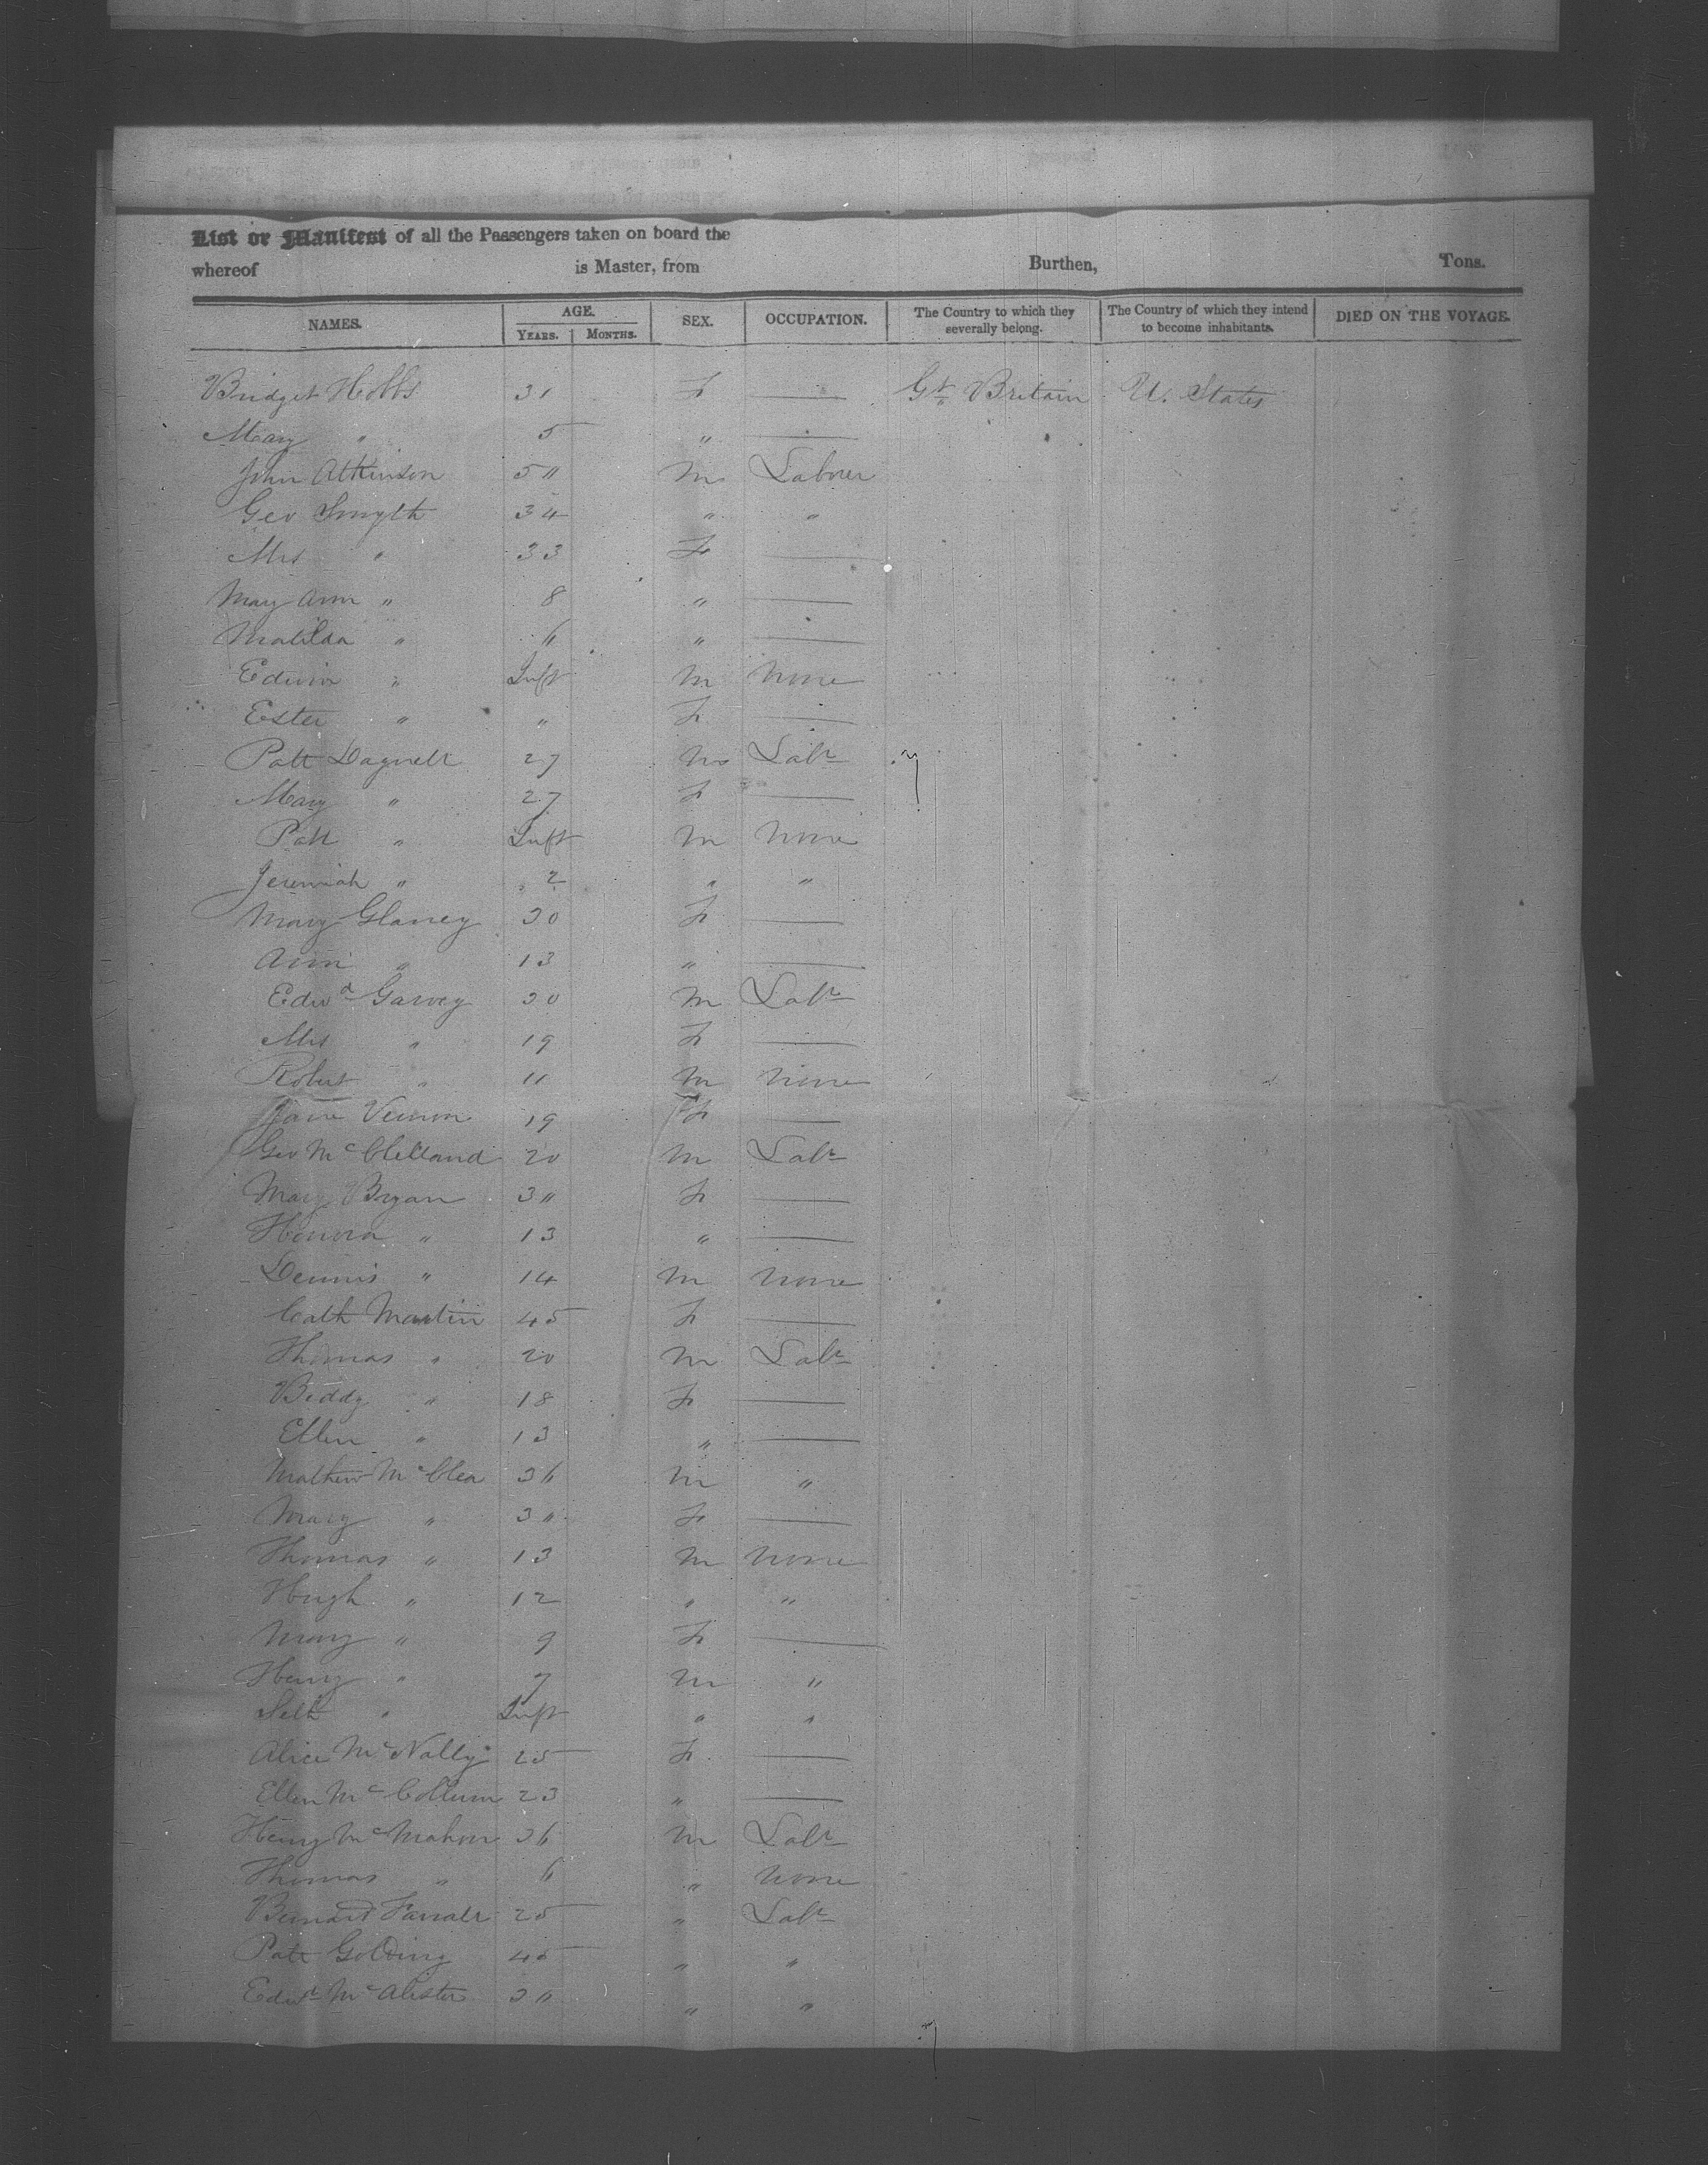 List or Manifest of all the Passengers taken on board the
whereof is Master, from Burthen, Tons.
NAMES. AGE. SEX. OCCUPATION. The Country to which they severally belong. The Country of which they intend to become inhabitants. DIED ON THE VOYAGE.
YEARS. MONTHS.
Bridget Hobbs 31 F — Gt Britain U. States
Mary " 5 " —
John Atkinson 50 M Labourer
Geo Smyth 34 " "
Mrs " 33 F —
Mary Ann " 8 " —
Matilda " 6 " —
Edwin " Inft M None
Ester " " F —
Patt 27 M Labr
Mary " 27 F —
Patt " Inft M None
Jeremiah " 2 " "
Mary Glancy 30 F —
Ann " 13 " —
Edwd Garvey 30 M Labr
Mrs " 19 F —
Robert " 11 M None
Jane Vernon 19 F —
Geo McClelland 20 M Labr
Mary Bryan 30 F —
Honora " 13 " —
Dennis " 14 M None
Cath Martin 45 F —
Thomas " 20 M Labr
Biddy " 18 F —
Ellen " 13 " —
Mathew McClea 36 M "
Mary " 30 F —
Thomas " 13 M None
Hugh " 12 " "
Mary " 9 F —
Henry " 7 M "
" Inft " "
Alice McNally 25 F —
Ellen McCollum 23 " —
Henry McMahon 36 M Labr
Thomas " 6 " None
Bernard 25 " Labr
Patt Golding 45 " "
Edwd McAlister 30 " "